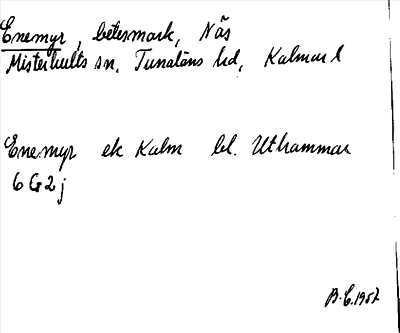 Enemyr, betesmark, Näs
Misterhults sn, Tunaläns hd, Kalmar l
Enemyr ek Kalm bl. Uthammar
6 G 2 j
B.C. 1957